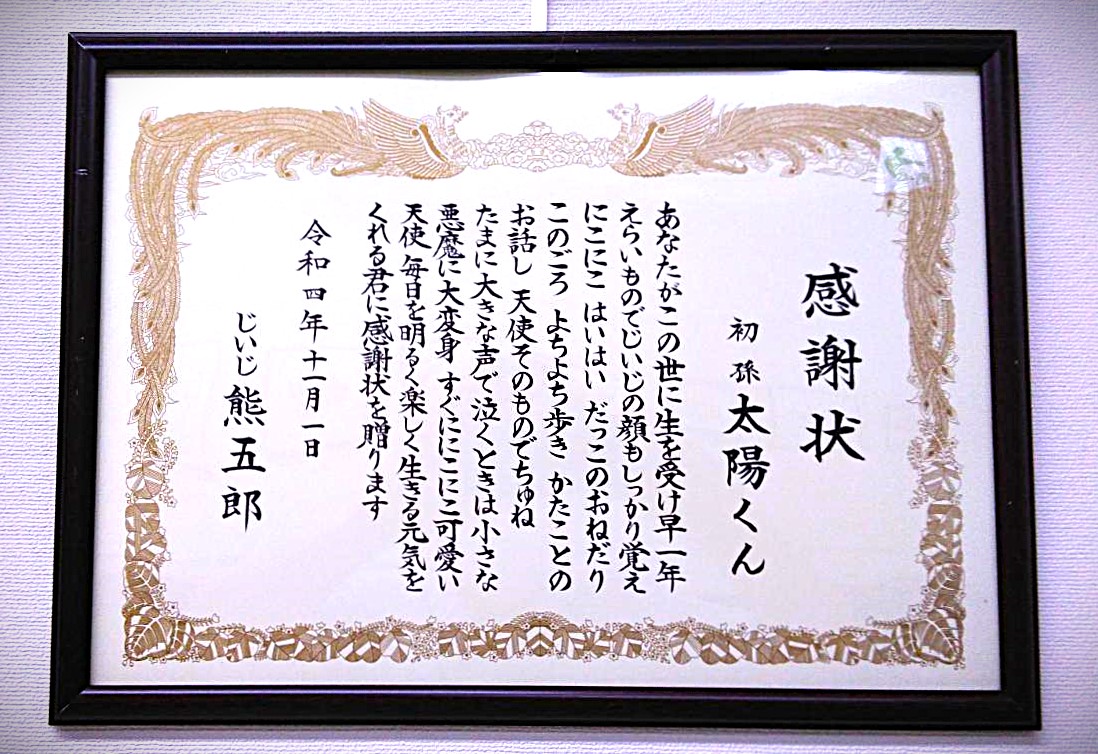 感謝状
初孫 太陽くん
あなたがこの世に生を受け早一年
えらいものでじいじの顔もしっかり覚え
にこにこ はいはい だっこのおねだり
このごろ よちよち歩き かたことの
お話し 天使そのものでちゅね
たまに大きな声で泣くときは小さな
悪魔に大変身 すぐににこにこ可愛い
天使 毎日を明るく楽しく生きる元気を
くれる君に感謝状を贈ります
令和四年十一月一日
じいじ 熊五郎